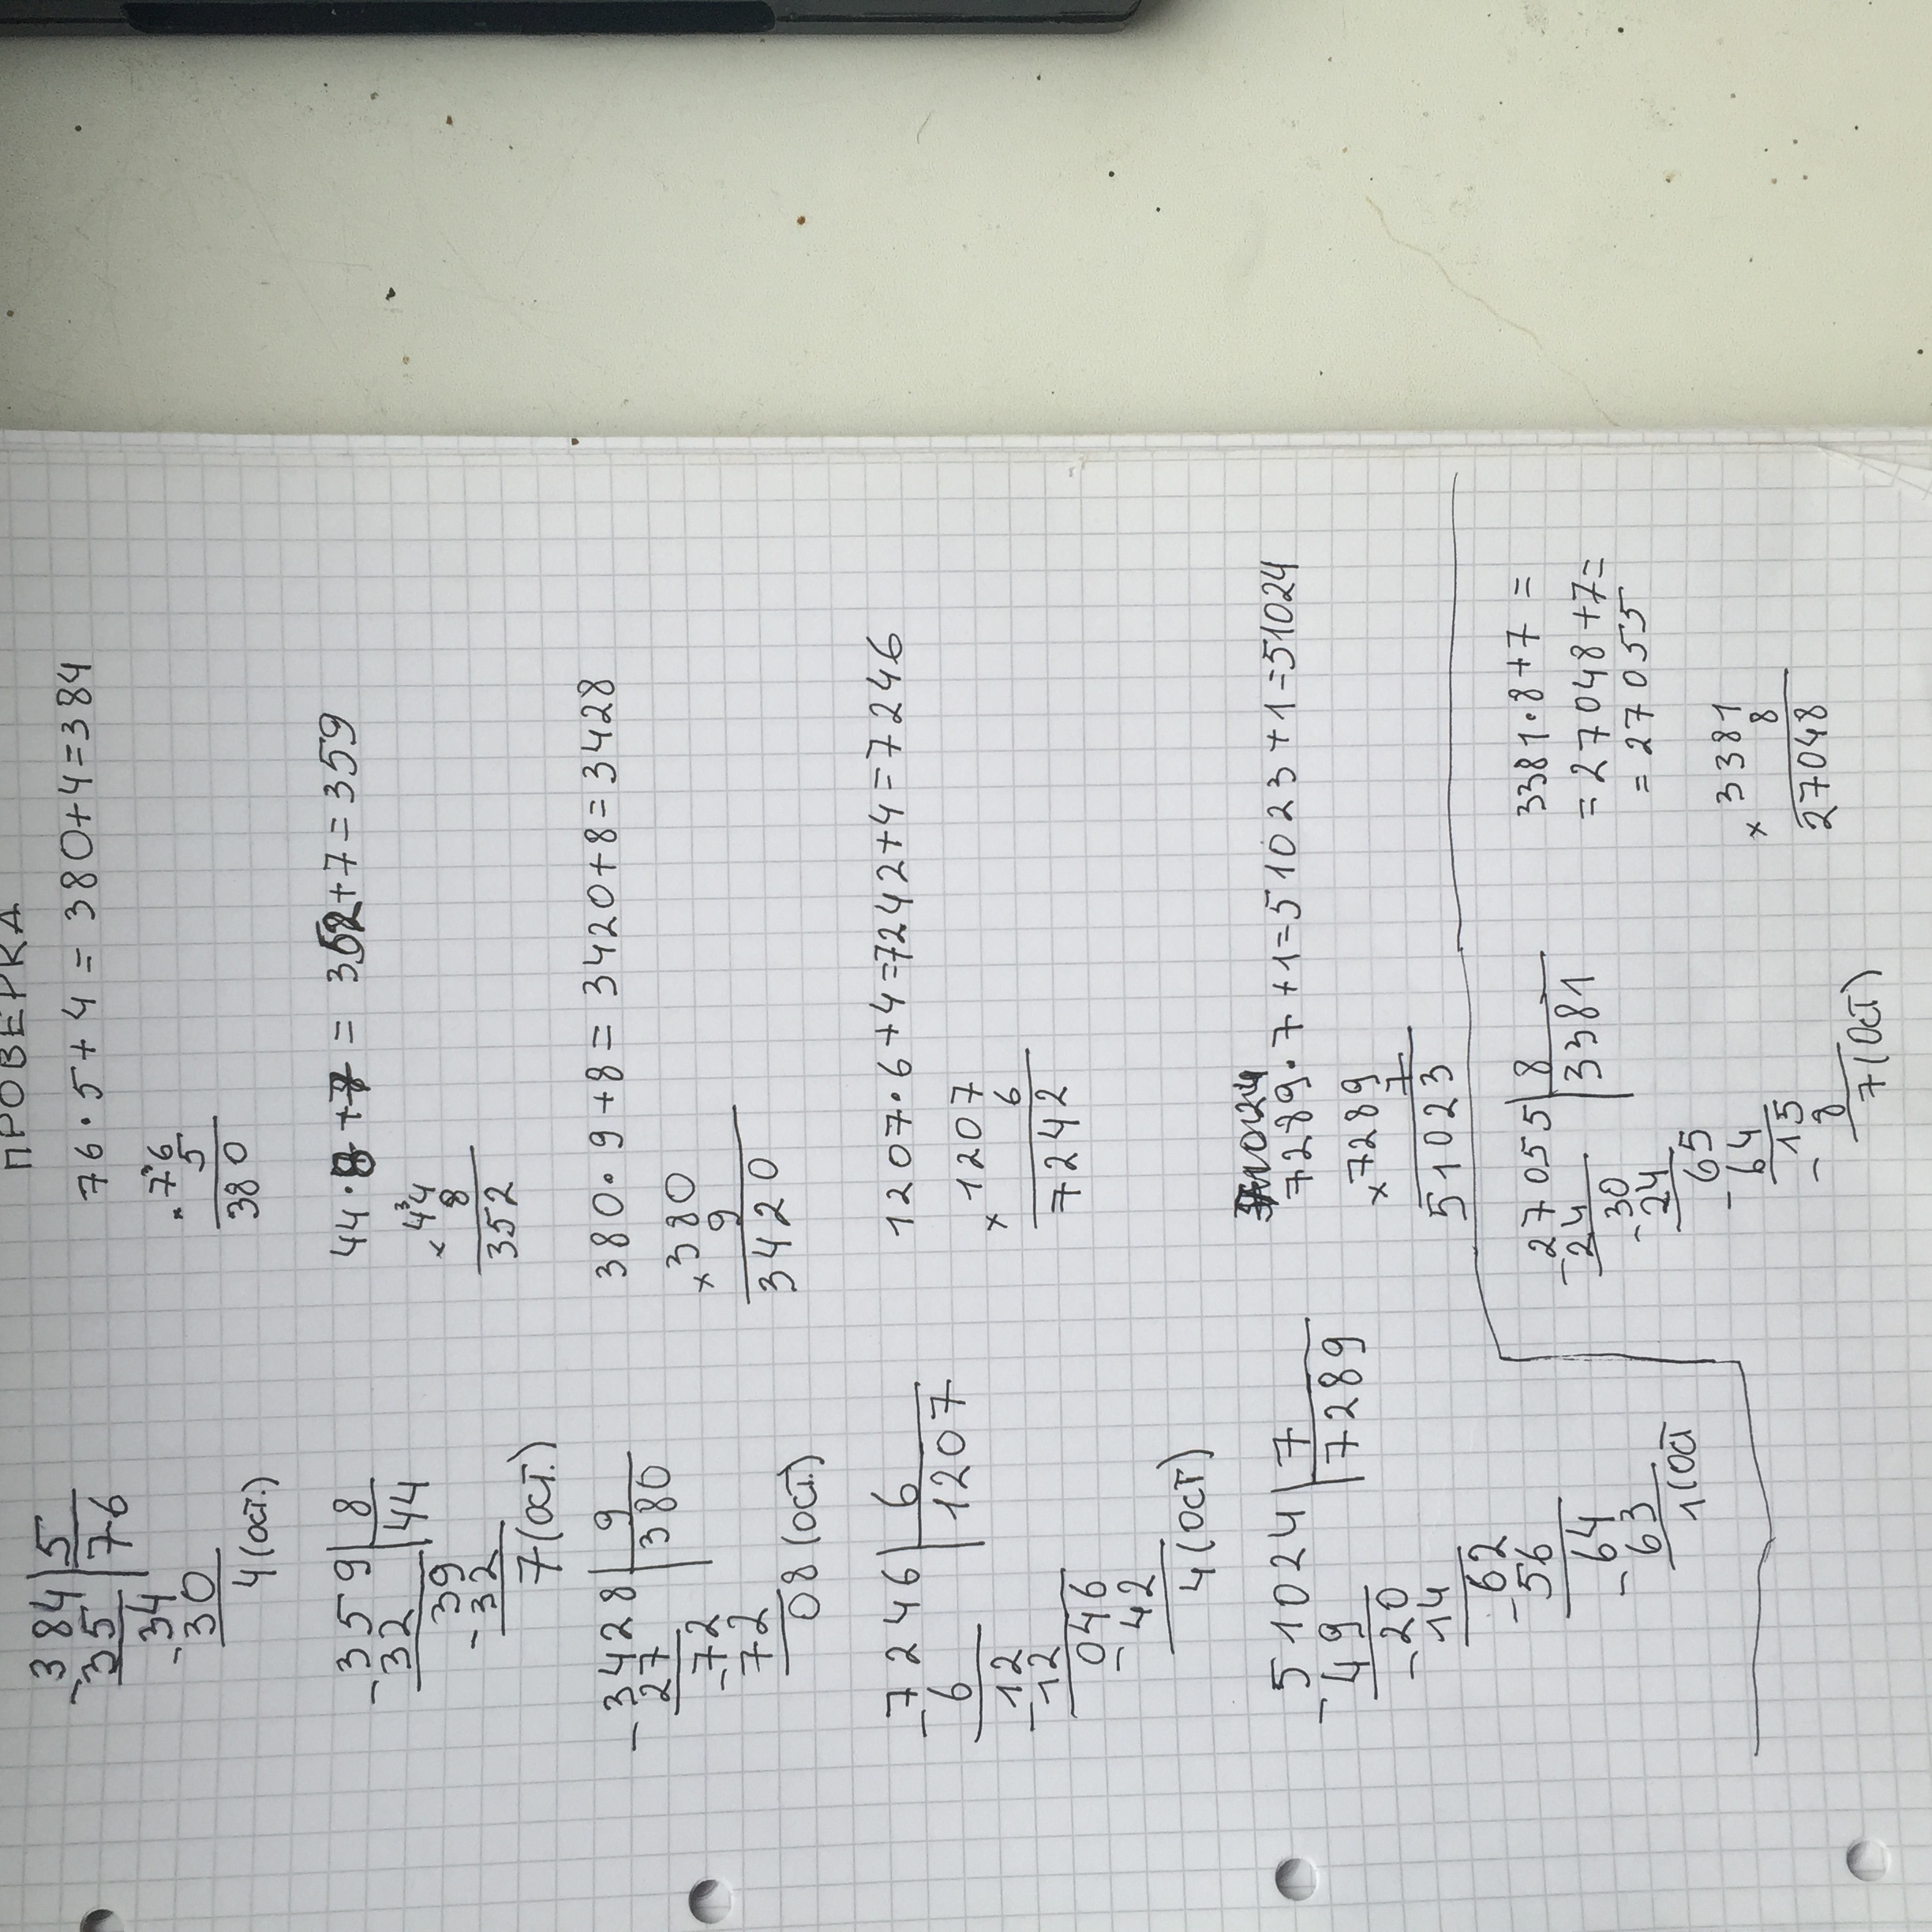 ПРОВЕРКА
384 | 5
-35 | 76
-34
30
4 (ост.)
76 · 5 + 4 = 380 + 4 = 384
× 76
5
380
-359 | 8
32 | 44
-39
32
7 (ост.)
44 · 8 + 7 = 352 + 7 = 359
× 44
8
352
-3428 | 9
27 | 380
-72
72
08 (ост.)
380 · 9 + 8 = 3420 + 8 = 3428
× 380
9
3420
-7246 | 6
6 | 1207
-12
12
046
- 42
4 (ост)
1207 · 6 + 4 = 7242 + 4 = 7246
× 1207
6
7242
-51024 | 7
49 | 7289
-20
14
-62
56
-64
63
1 (ост
7289 · 7 + 1 = 51023 + 1 = 51024
× 7289
7
51023
-27055 | 8
24 | 3381
-30
24
-65
64
-15
8
7 (ост)
3381 · 8 + 7 =
= 27048 + 7 =
= 27055
× 3381
8
27048